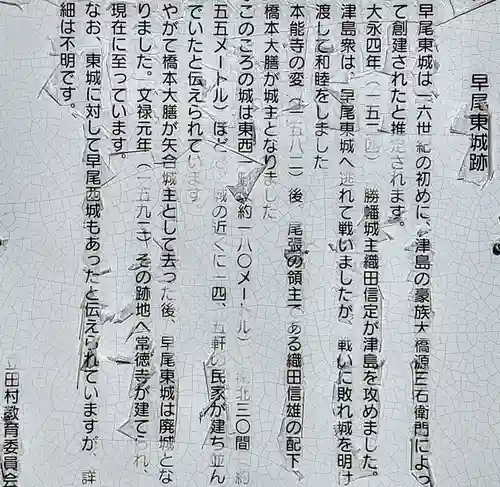 早尾東城跡
早尾東城は一六世紀の初めに、津島の豪族大橋源三右衛門によっ
て創建されたと推定されます。
大永四年（一五二四）勝幡城主織田信定が津島を攻めました。
津島衆は、早尾東城へ逃れて戦いましたが、戦いに敗れ城を明け
渡して和睦をしました
本能寺の変（一五八二）後、尾張の領主である織田信雄の配下
橋本大膳が城主となりました
このころの城は東西一 約一八〇メートル） 北三〇間 約
五五メートル）ほど 城の近くに一四、五軒の民家が建ち並ん
でいたと伝えられています
やがて橋本大膳が矢合城主として去った後、早尾東城は廃城とな
りました。文禄元年（一五九二）、その跡地へ常徳寺が建てられ、
現在に至っています。
なお、東城に対して早尾西城もあったと伝えられていますが、詳
細は不明です。
立田村教育委員会